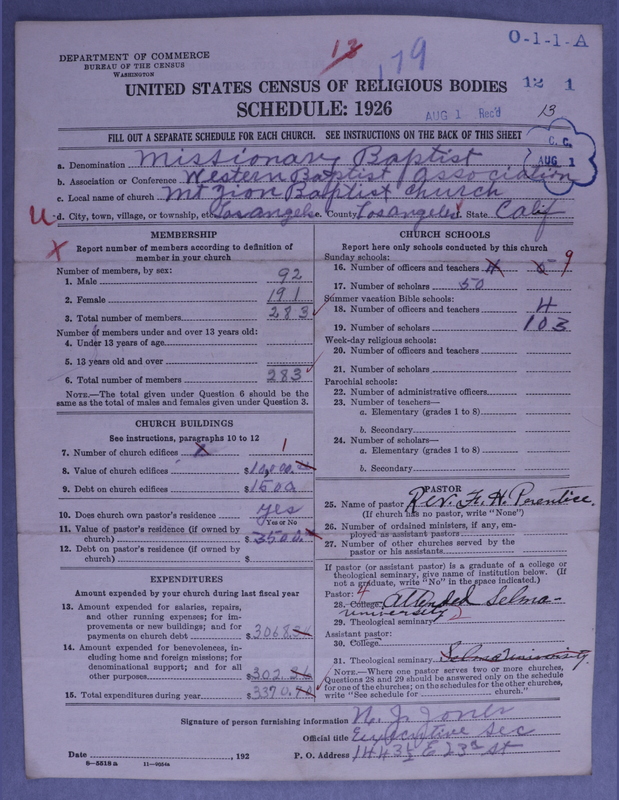 O-1-1-A
13 179
DEPARTMENT OF COMMERCE
BUREAU OF THE CENSUS
WASHINGTON
12 1
UNITED STATES CENSUS OF RELIGIOUS BODIES
SCHEDULE: 1926
AUG 1 Rec'd 13
FILL OUT A SEPARATE SCHEDULE FOR EACH CHURCH. SEE INSTRUCTIONS ON THE BACK OF THIS SHEET
C. C.
AUG 1
a. Denomination Missionary Baptist
b. Association or Conference Western Baptist Association
c. Local name of church Mt Zion Baptist Church
U d. City, town, village, or township, etc. Los angels e. County Los angeles f. State Calif
X
MEMBERSHIP
Report number of members according to definition of member in your church
Number of members, by sex:
1. Male 92
2. Female 191
3. Total number of members 283
Number of members under and over 13 years old:
4. Under 13 years of age
5. 13 years old and over
6. Total number of members 283
NOTE.—The total given under Question 6 should be the same as the total of males and females given under Question 3.
CHURCH BUILDINGS
See instructions, paragraphs 10 to 12
7. Number of church edifices 1
8. Value of church edifices $10,000.00
9. Debt on church edifices $1500
10. Does church own pastor's residence yes
Yes or No
11. Value of pastor's residence (if owned by church) $3500.
12. Debt on pastor's residence (if owned by church) $
EXPENDITURES
Amount expended by your church during last fiscal year
13. Amount expended for salaries, repairs, and other running expenses; for improvements or new buildings; and for payments on church debt $3068.34
14. Amount expended for benevolences, including home and foreign missions; for denominational support; and for all other purposes $302.36
15. Total expenditures during year $3370.70
CHURCH SCHOOLS
Report here only schools conducted by this church
Sunday schools:
16. Number of officers and teachers 9
17. Number of scholars 50
Summer vacation Bible schools:
18. Number of officers and teachers 4
19. Number of scholars 103
Week-day religious schools:
20. Number of officers and teachers
21. Number of scholars
Parochial schools:
22. Number of administrative officers
23. Number of teachers—
a. Elementary (grades 1 to 8)
b. Secondary
24. Number of scholars—
a. Elementary (grades 1 to 8)
b. Secondary
PASTOR
25. Name of pastor Rev. F. H. Prentice.
(If church has no pastor, write "None")
26. Number of ordained ministers, if any, employed as assistant pastors
27. Number of other churches served by the pastor or his assistants
If pastor (or assistant pastor) is a graduate of a college or theological seminary, give name of institution below. (If not a graduate, write "No" in the space indicated.)
Pastor: 4
28. College Attended Selma-
university 2
29. Theological seminary
Assistant pastor:
30. College
31. Theological seminary Selma University.
NOTE.—Where one pastor serves two or more churches, Questions 28 and 29 should be answered only on the schedule for one of the churches; on the schedules for the other churches, write "See schedule for church."
Signature of person furnishing information N. J. Jones
Official title Executive Sec
Date , 192 P. O. Address 1443½ E 23rd St
8-5518a 11-9054a